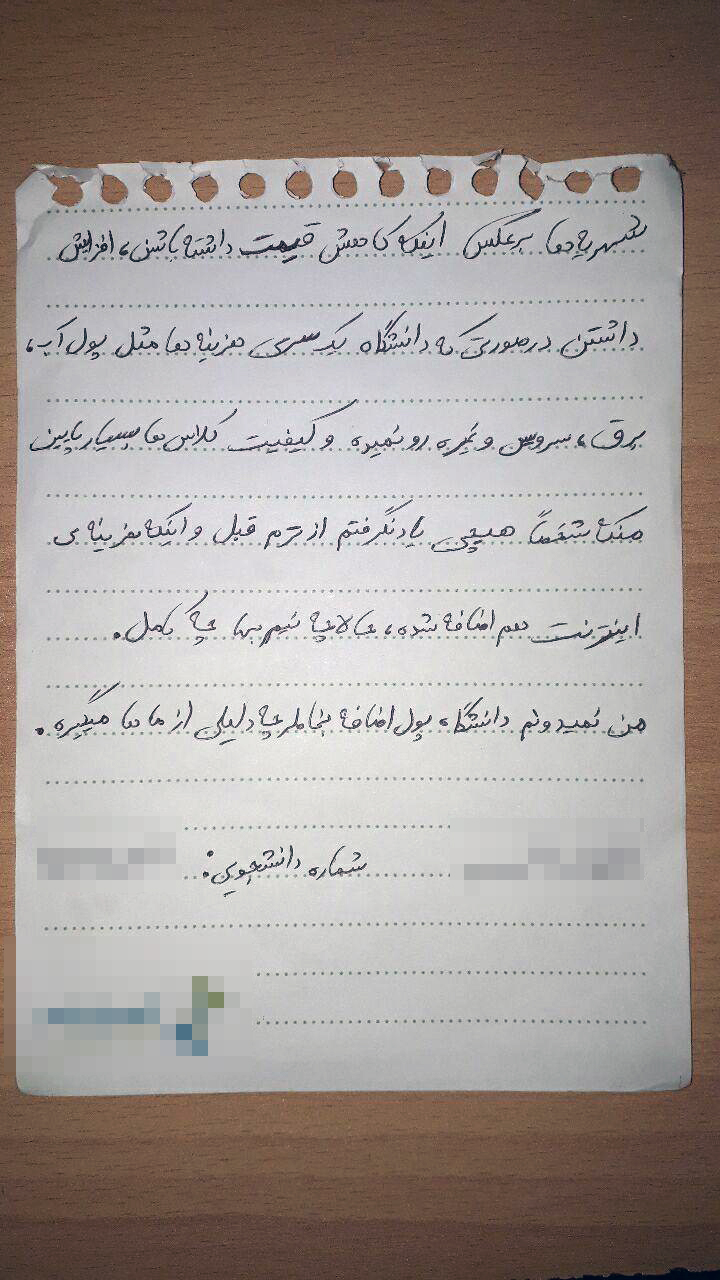 شهریه ها برعکس اینکه کاهش قیمت داشته باشن، افزایش
داشتن در صورتی که دانشگاه یک سری هزینه ها مثل پول آب،
برق، سرویس و غیره رو نمیده و کیفیت کلاس ها بسیار پایین
منکه شخصاً هیچی یاد نگرفتم از ترم قبل و اینکه هزینه ی
اینترنت هم اضافه شده، حالا چه نیم بها چه کامل.
من نمیدونم دانشگاه پول اضافه بخاطر چه دلیلی از ماها میگیره.
شماره دانشجویی: